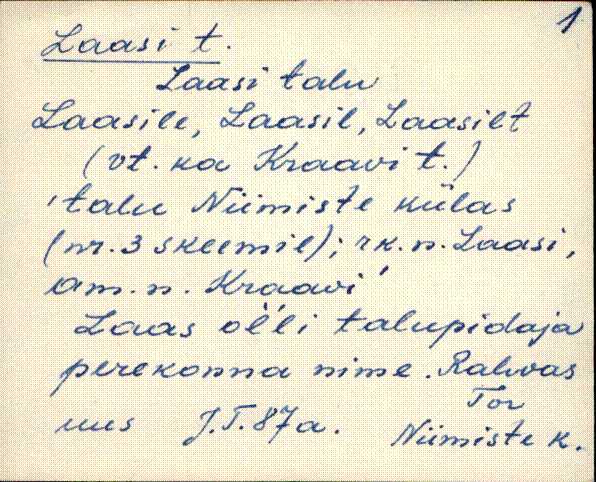 1
Laasi t.
Laasi talu
Laasile, Laasil, Laasilt
(vt. ka Kraavi t.)
'talu Niimiste külas
(nr. 3 skeemil); rk. n. Laasi,
am. n. Kraavi'
Laas oĺĺi talupidaja
perekonna nime. Rahvas
Tor
uus J.T. 87a. Niimiste k.